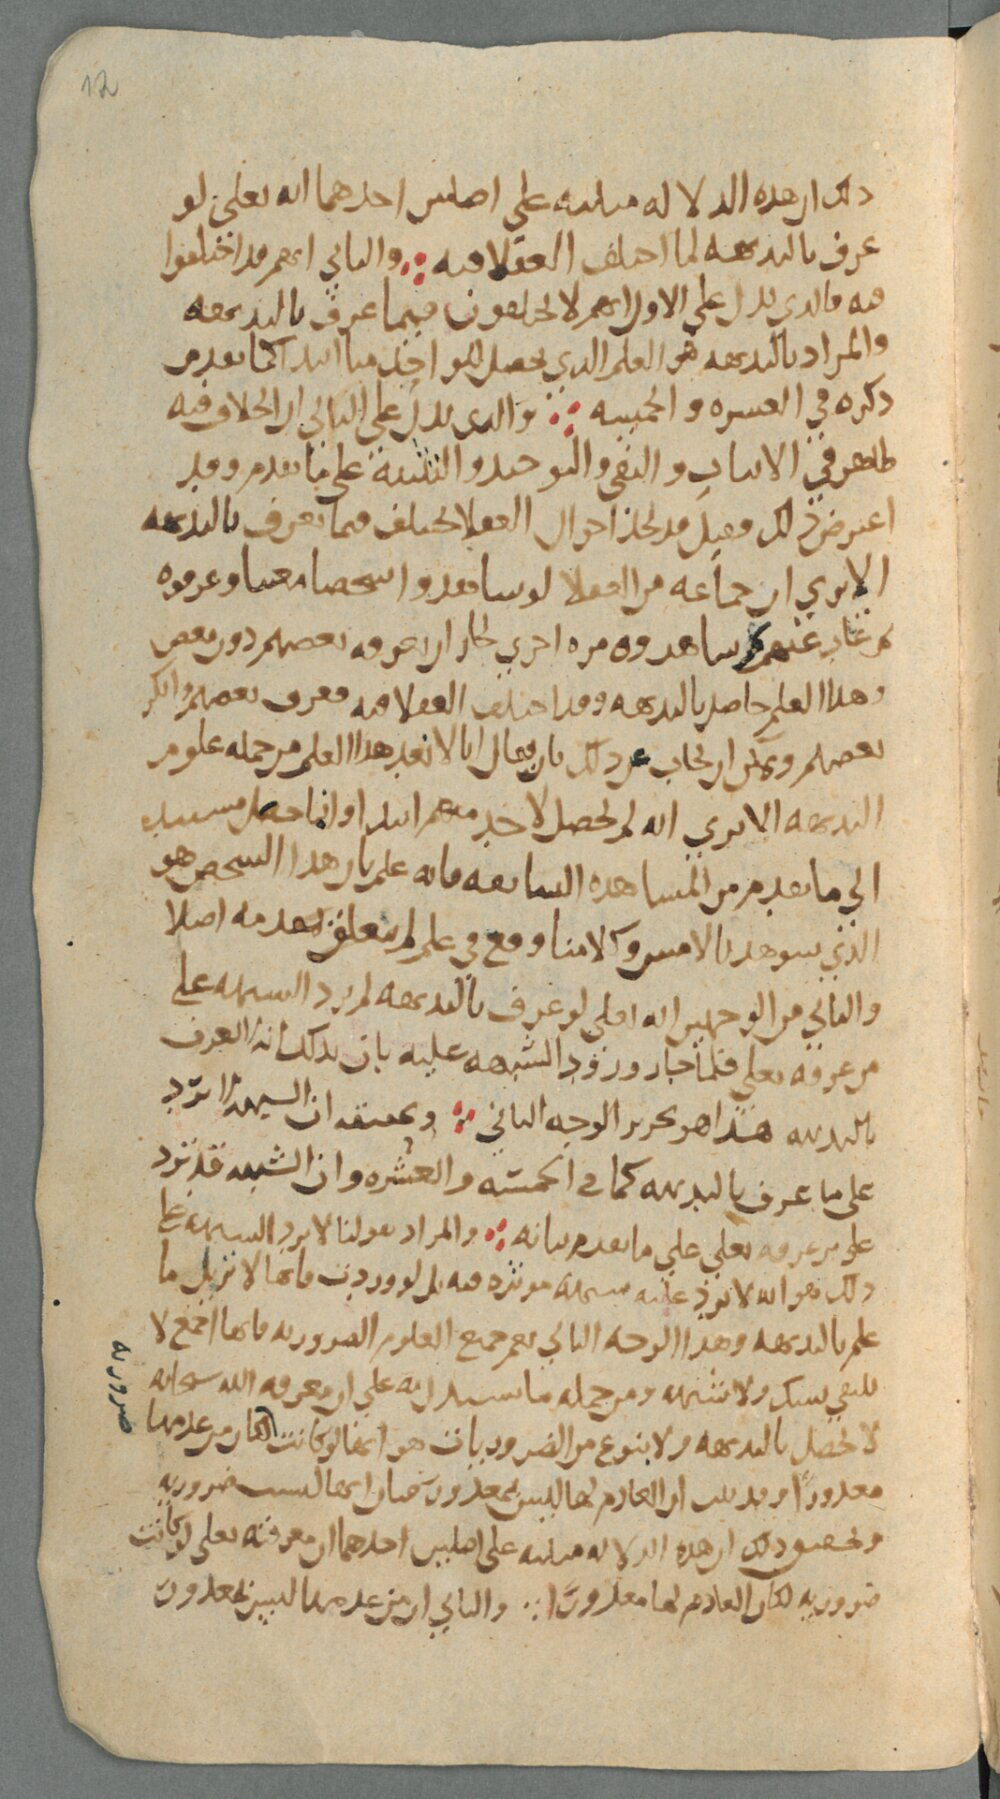 12
ذلك ان هذه الدلاله مبنيه علي اصلين احدهما انه تعلى لو
عرف بالبديهه لما اختلف العقلا فيه والثاني انهم قد اختلفوا
فيه فالذي يدل علي الاول انهم لا يختلفون فيما عرف بالبديهه
والمراد بالبديهه هو العلم الذي يحصل للواحد منا ابتدا كما تقدم
ذكره في العشره والخمسه والذي يدل علي الثاني ان الخلاف فيه
ظاهر في الاثبات والنفي والتوحيد والتثنية علي ما تقدم وقد
اعترض ذلك فقيل قد نجد احوال العقلا تختلف فيما يعرف بالبديهه
الا تري ان جماعه من العقلا لو شاهدوا شخصا معينا وعرفوه
ثم غاب عنهم ثم شاهدوه مره اخري لجاز ان يعرفه بعضهم دون بعض
وهذا العلم حاصل بالبديهه وقد اختلف العقلا فيه فعرف بعضهم وانكر
بعضهم ويمكن ان يجاب عن ذلك بان يقال انا لا نعد هذا العلم من جمله علوم
البديهه الا تري انه لم يحصل لاحد منهم ابتدا وانما حصل مستند
الي ما تقدم من المشاهده السابقه فانه علم بان هذا الشخص هو
الذي شوهد بالامس وكلامنا وقع في علم لم يتعلق بعدمه اصلا
والثاني من الوجهين انه تعلى لو عرف بالبديهه لم ترد الشبهه علي
من عرفه تعلي فلما جاز ورود الشبهه عليه بان بذلك انه لا يعرف
بالبديهه هذا هو تحرير الوجه الثاني وتحقيقه ان الشبهه لا ترد
على ما عرف بالبديهه كما في الخمسه والعشره وان الشبهه قد ترد
علي من عرفه تعلي علي ما تقدم بيانه والمراد بقولنا لا ترد الشبهه علي
ذلك هو انه لا ترد عليه شبهة موثره فيه بل لو وردت فانها لا تزيل ما
علم بالبديهه وهذا الوجه الثاني يعم جميع العلوم الضروريه فانها اجمع لا
تنتفي بشك ولا شبهه ومن جمله ما يستدل به علي ان معرفه الله سبحانه
لا تحصل بالبديهه ولا بنوع من الضروريات هو انها لو كانت لكان من عدمها
ضروريه
معذورا وقد ثبت ان العادم لها ليس بمعذور فبان انها ليست ضروريه
وتحقيق ذلك ان هذه الدلاله مبنيه علي اصلين احدهما ان معرفته تعلي لو كانت
ضروريه لكان العادم لها معذورا والثاني ان من عدمها ليس بمعذور